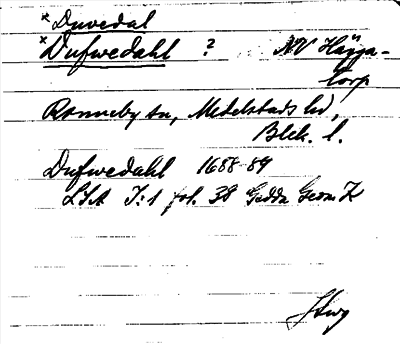 * Duvedal
* Dufwedahl ? NV Hägga-
torp
Ronneby sn, Medelstads hd,
Blek. l.
Dufwedahl 1688-89
LSA I:1 fol. 38 Gedda Geom K